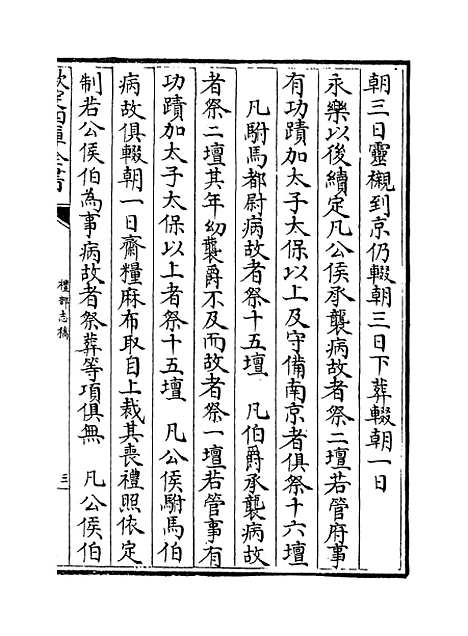 朝三日靈櫬到京仍輟朝三日下葬輟朝一日
永樂以後續定凡公侯承襲病故者祭二壇若管府事
有功蹟加太子太保以上及守備南京者俱祭十六壇
凡駙馬都尉病故者祭十五壇　凡伯爵承襲病故
者祭二壇其年幼襲爵不及而故者祭一壇若管事有
功蹟加太子太保以上者祭十五壇　凡公侯駙馬伯
病故俱輟朝一日齋糧麻布取自上裁其喪禮照依定
制若公侯伯為事病故者祭葬等項俱無　凡公侯伯
欽定四庫全書
禮部志稿
三